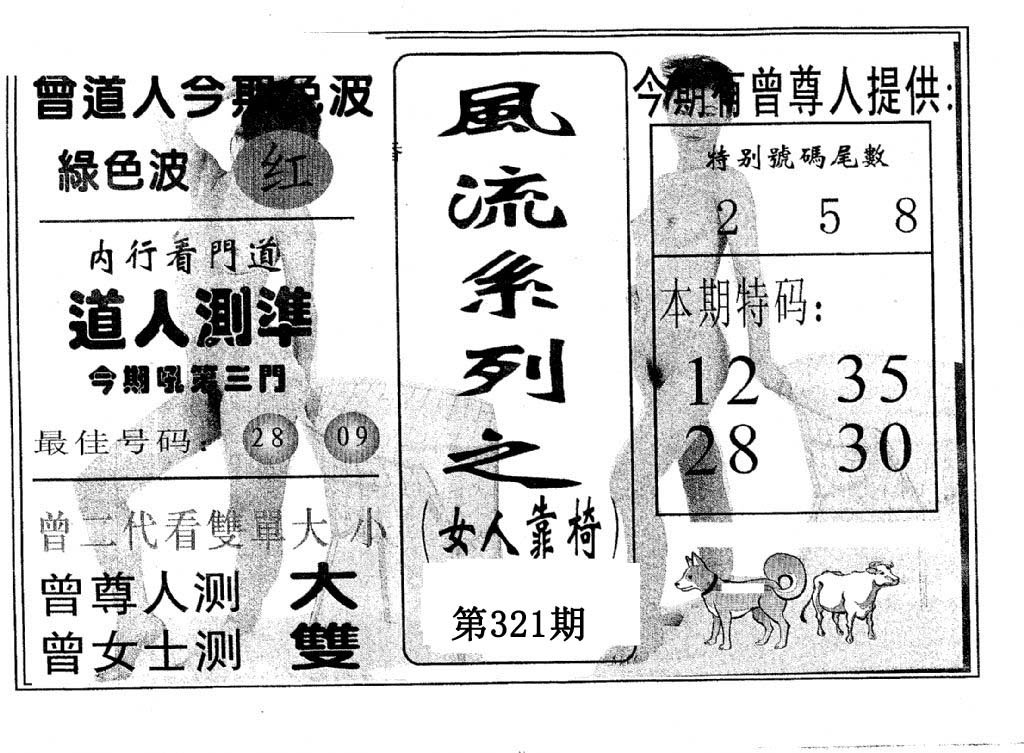 曾道人今期色波
綠色波 红
内行看門道
道人測準
今期吼第三門
最佳号码: 28 09
曾二代看雙單大小
曾尊人测 大
曾女士测 雙
風流系列之
(女人靠椅)
第321期
今期有曾尊人提供:
特别號碼尾數
2 5 8
本期特码:
12 35
28 30